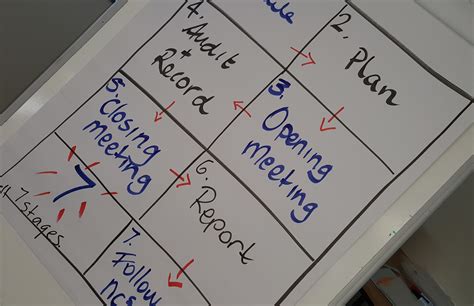 2.
Plan
3.
Opening
meeting
4.
Audit
+
Record
5.
Closing
meeting
6.
Report
7.
Follow
ncs
7
7 stages